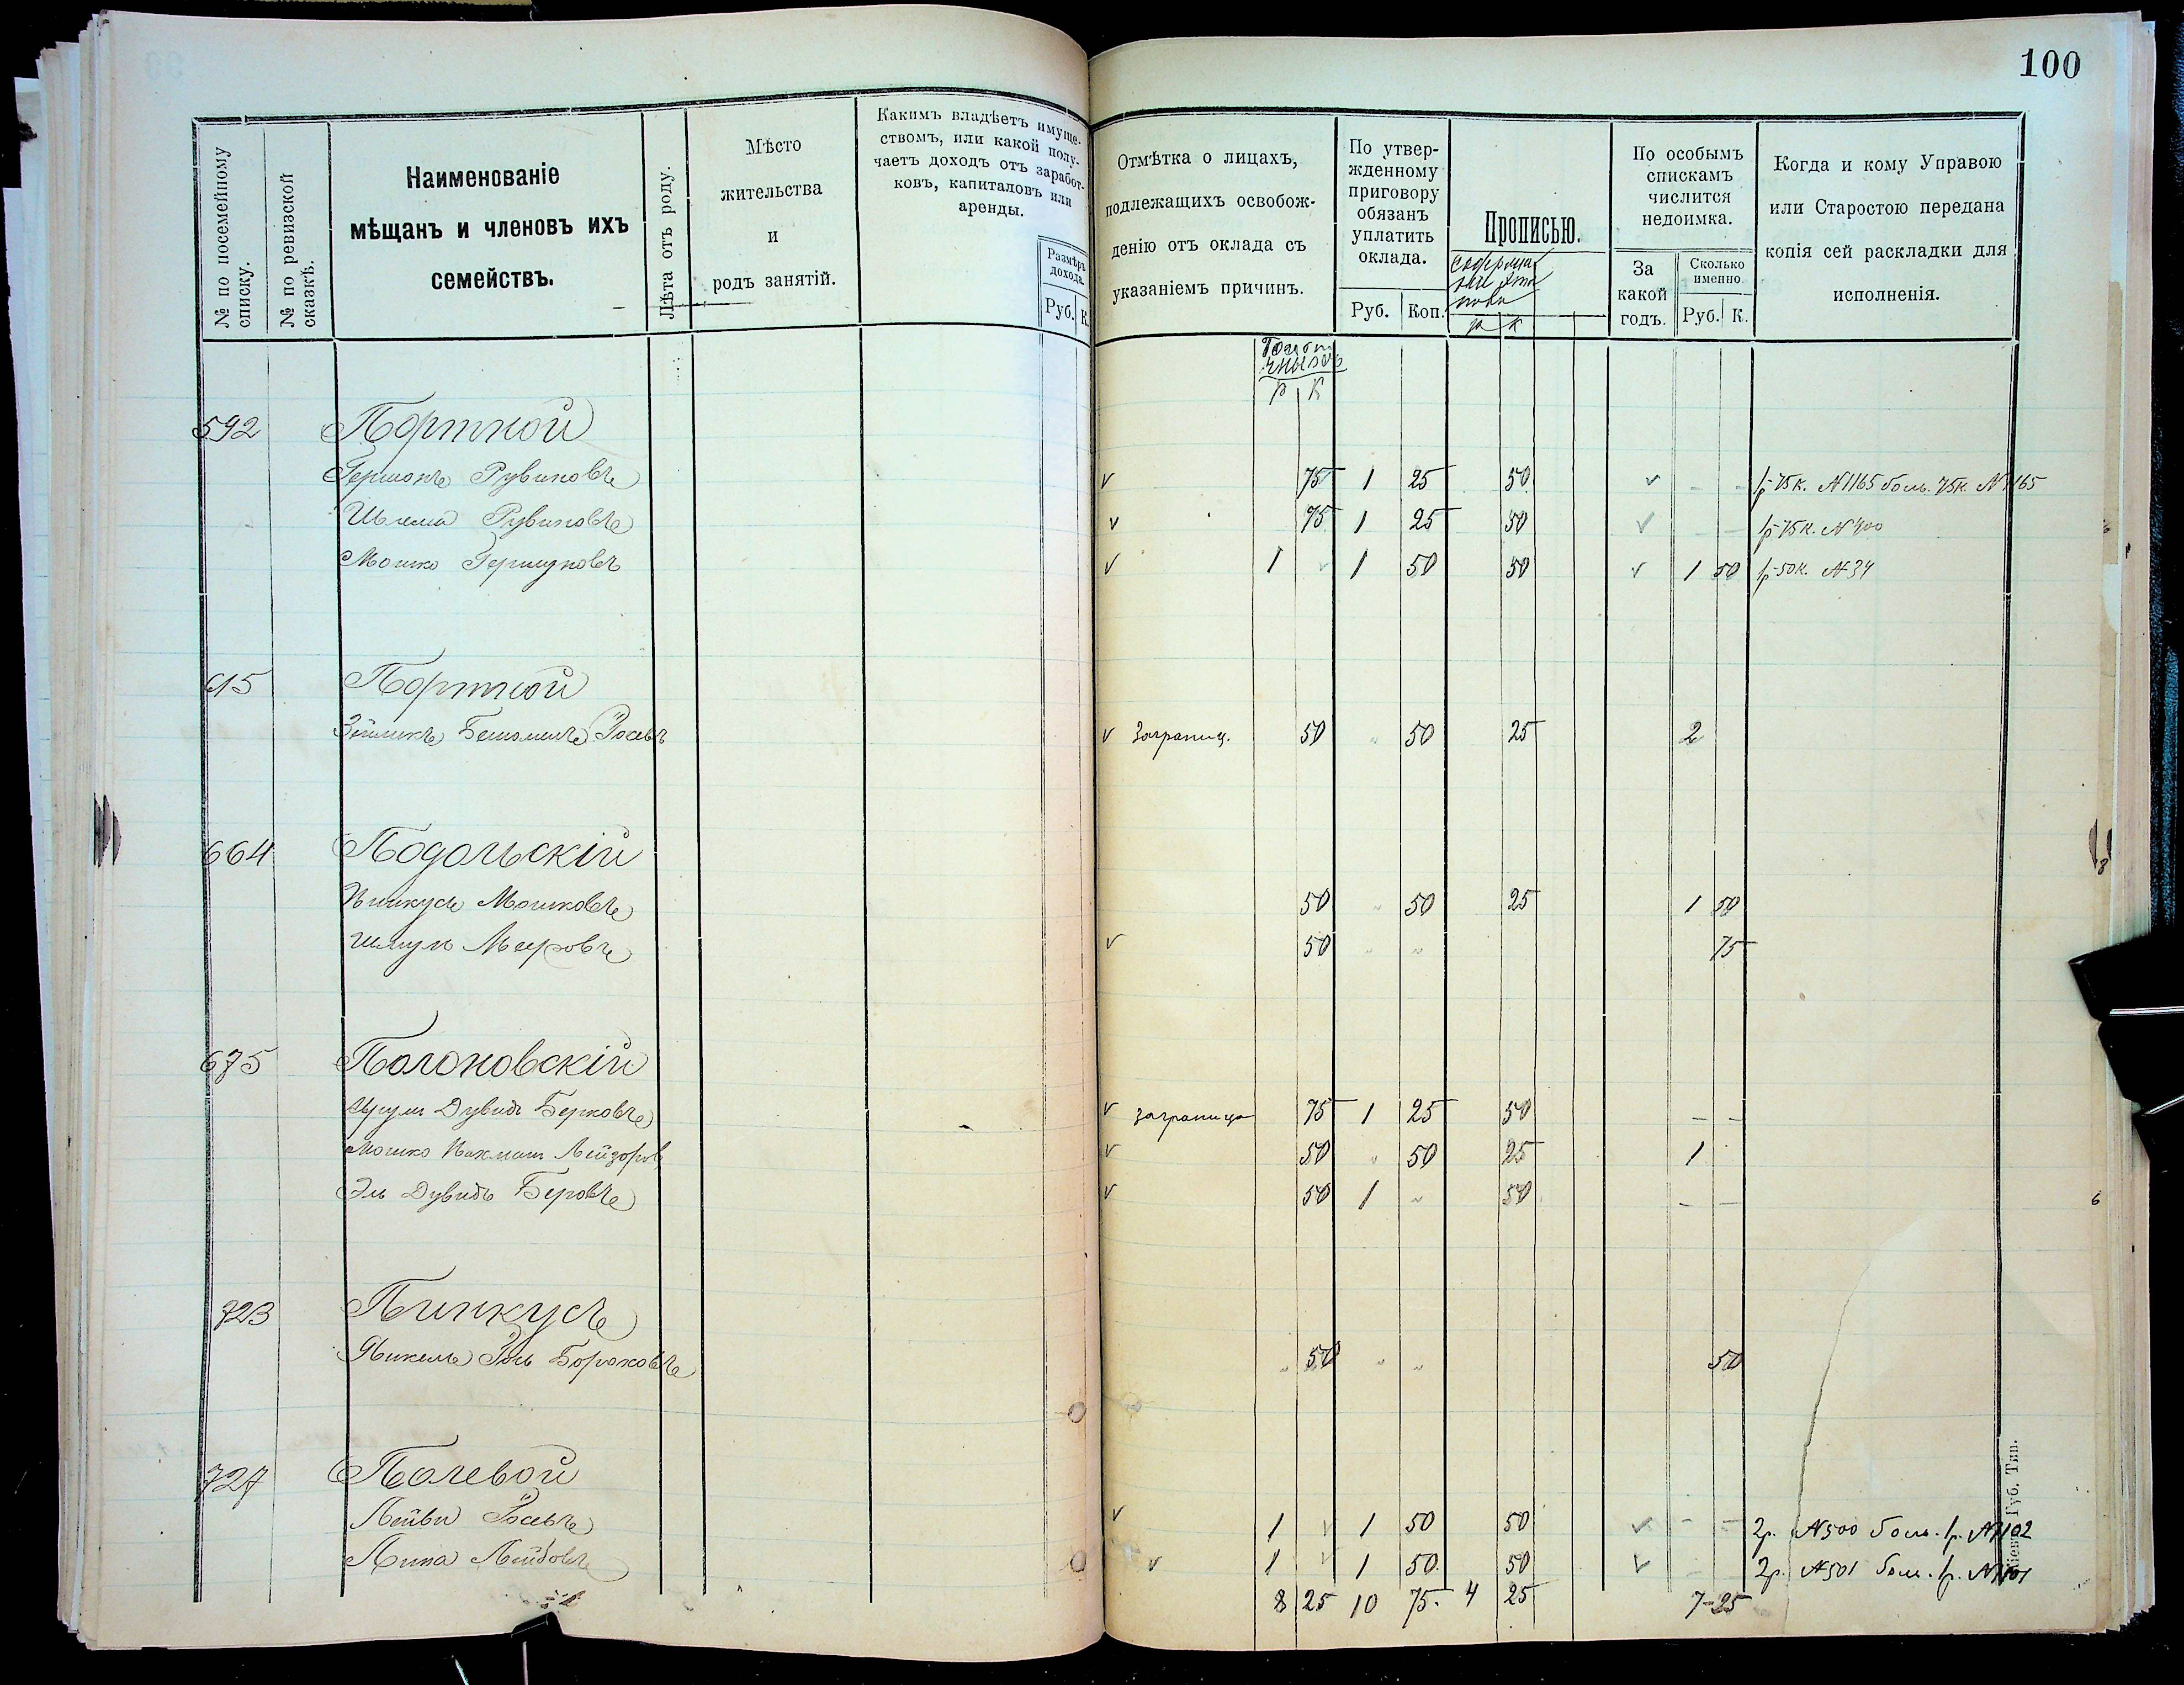 100
№ по посемейному списку.
№ по ревизской сказкѣ.
Наименованіе
мѣщанъ и членовъ ихъ
семействъ.
Лѣта отъ роду.
Мѣсто
жительства
и
родъ занятій.
Какимъ владѣетъ имуще-
ствомъ, или какой полу-
чаетъ доходъ отъ заработ-
ковъ, капиталовъ или
аренды.
Размѣръ
дохода.
Руб. К.
Отмѣтка о лицахъ,
подлежащихъ освобож-
денію отъ оклада съ
указаніемъ причинъ.
По утвер-
жденному
приговору
обязанъ
уплатить
оклада.
Руб. Коп.
Прописью.
р к
По особымъ
спискамъ
числится
недоимка.
За
какой
годъ.
Сколько
именно
Руб. К.
Когда и кому Управою
или Старостою передана
копія сей раскладки для
исполненія.
р к
592 Портной
Гершонъ Рувиновъ 75 1 25 50 1р 75к. №1165 боль. 75к. №1165
Рувиновъ 75 1 25 50 1р 75к. №400
Мошко Гершуновъ 1 1 50 50 1 50 1р 50к. №34
615 Портной
Зейликъ Беньоминъ Іосевъ Заграниц. 50 " 50 25 2
664 Подольскій
Пинкусъ Мошковъ 50 " 50 25 1 50
Шмуль Мееровъ 50 " " 75
675 Полоновскій
Сруль Дувидъ Берковъ заграницо 75 1 25 50 — —
Мошко Нахманъ Лейзоров 50 " 50 25 1
Эль Дувидъ Беровъ 50 1 " 50 — —
723 Пинкусъ
Янкель Іоль Бороховъ " 50 " " 50
727 Полевой
Лейви Іосевъ 1 1 50 50 — — 2р. №500 боль. 1р. №1102
Пина Лейбовъ 1 1 50 50 2р. №501 боль. 1р. №1101
8 25 10 75 4 25 7-25
Кіевъ Губ. Тип.